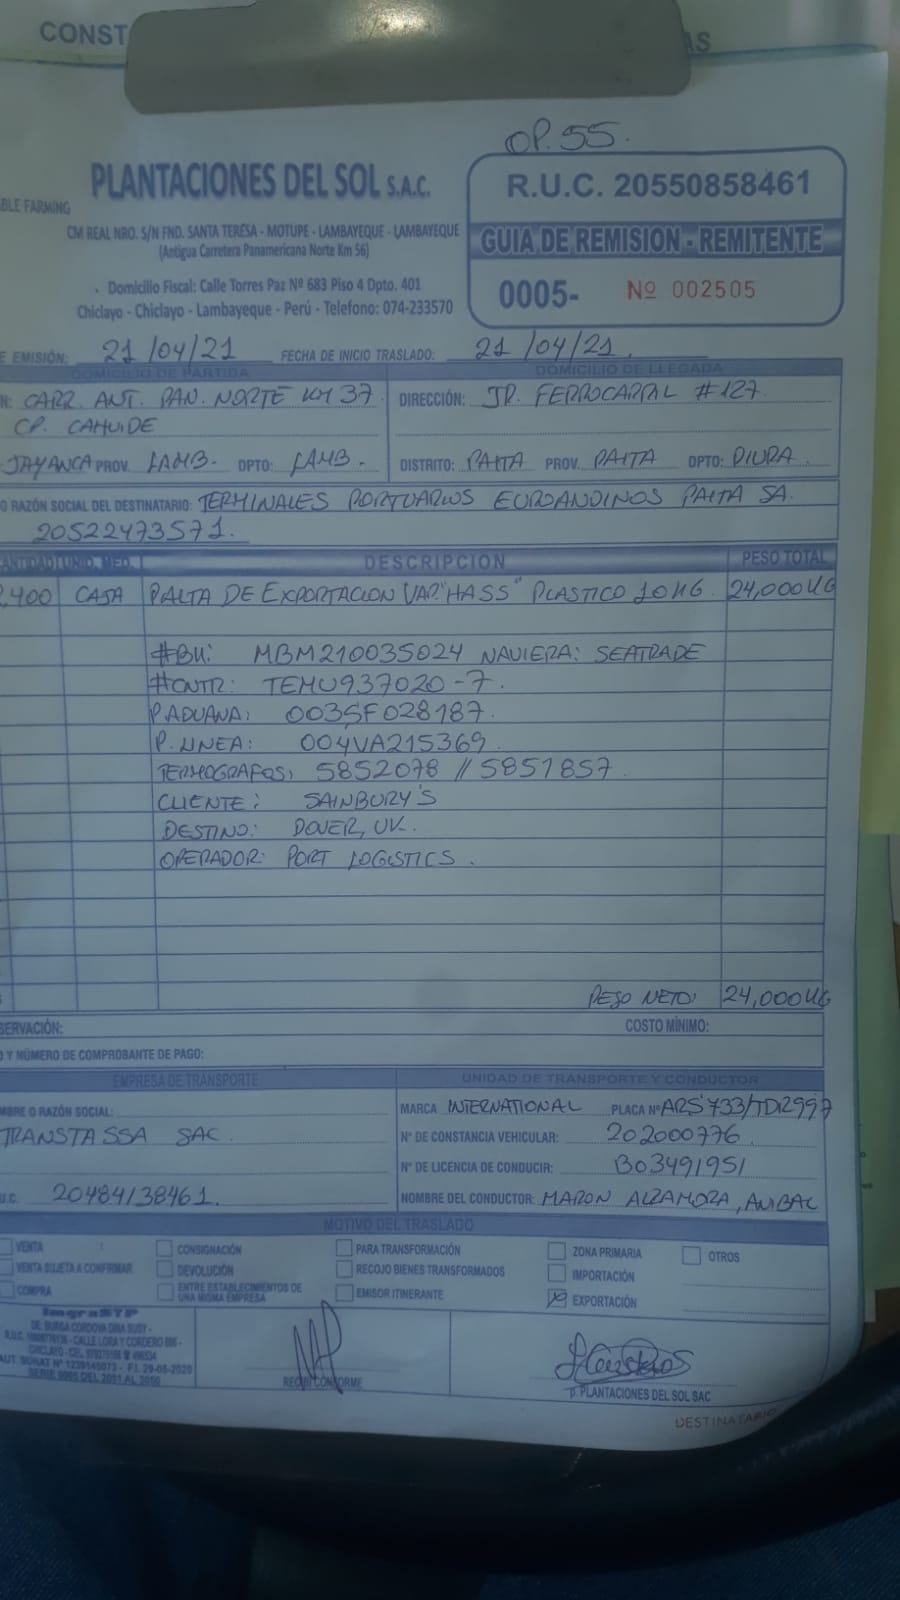 CONST
AS
OP. 55.
PLANTACIONES DEL SOL S.A.C.
BLE FARMING
CM REAL NRO. S/N FND. SANTA TERESA - MOTUPE - LAMBAYEQUE - LAMBAYEQUE
(Antigua Carretera Panamericana Norte Km 56)
Domicilio Fiscal: Calle Torres Paz Nº 683 Piso 4 Dpto. 401
Chiclayo - Chiclayo - Lambayeque - Perú - Telefono: 074-233570
R.U.C. 20550858461
GUIA DE REMISION - REMITENTE
0005- Nº 002505
E EMISIÓN: 21/04/21 FECHA DE INICIO TRASLADO: 21/04/21.
DOMICILIO DE PARTIDA DOMICILIO DE LLEGADA
N: CARR. ANT. PAN. NORTE KM 37 DIRECCIÓN: JR. FERROCARRIL #127
CP. CAHUIDE
JAYANCA PROV. LAMB. DPTO: LAMB. DISTRITO: PAITA PROV. PAITA DPTO: PIURA
O RAZÓN SOCIAL DEL DESTINATARIO: TERMINALES PORTUARIOS EUROANDINOS PAITA SA.
20522473571.
ANTIDAD UNID. MED. DESCRIPCION PESO TOTAL
2,400 CAJA PALTA DE EXPORTACION VAR "HASS" PLASTICO 10KG. 24,000KG
#BK: MBM210035024 NAVIERA: SEATRADE
#CNTR: TEMU937020-7.
P. ADUANA: 003SF028187.
P. LINEA: 004VA215369
TERMOGRAFOS: 5852078 // 5851857
CLIENTE: SAINBURY'S
DESTINO: DOVER, UK.
OPERADOR: PORT LOGISTICS.
PESO NETO: 24,000KG
SERVACIÓN: COSTO MÍNIMO:
O Y NÚMERO DE COMPROBANTE DE PAGO:
EMPRESA DE TRANSPORTE UNIDAD DE TRANSPORTE Y CONDUCTOR
MBRE O RAZÓN SOCIAL: MARCA INTERNATIONAL PLACA Nº ARS 733/TDI2997
TRANSTASSA SAC Nº DE CONSTANCIA VEHICULAR: 202000776
Nº DE LICENCIA DE CONDUCIR: B03491951
U.C. 20484138461. NOMBRE DEL CONDUCTOR: MARON ALZAMORA, ANIBAL
MOTIVO DEL TRASLADO
VENTA CONSIGNACIÓN PARA TRANSFORMACIÓN ZONA PRIMARIA OTROS
VENTA SUJETA A CONFIRMAR DEVOLUCIÓN RECOJO BIENES TRANSFORMADOS IMPORTACIÓN
COMPRA ENTRE ESTABLECIMIENTOS DE UNA MISMA EMPRESA EMISOR ITINERANTE EXPORTACIÓN
DE: BURGA CORDOVA DINA SUSY -
SERIE 0005 DEL 2051 AL 3050
RECIBI CONFORME
p. PLANTACIONES DEL SOL SAC
DESTINATARIO